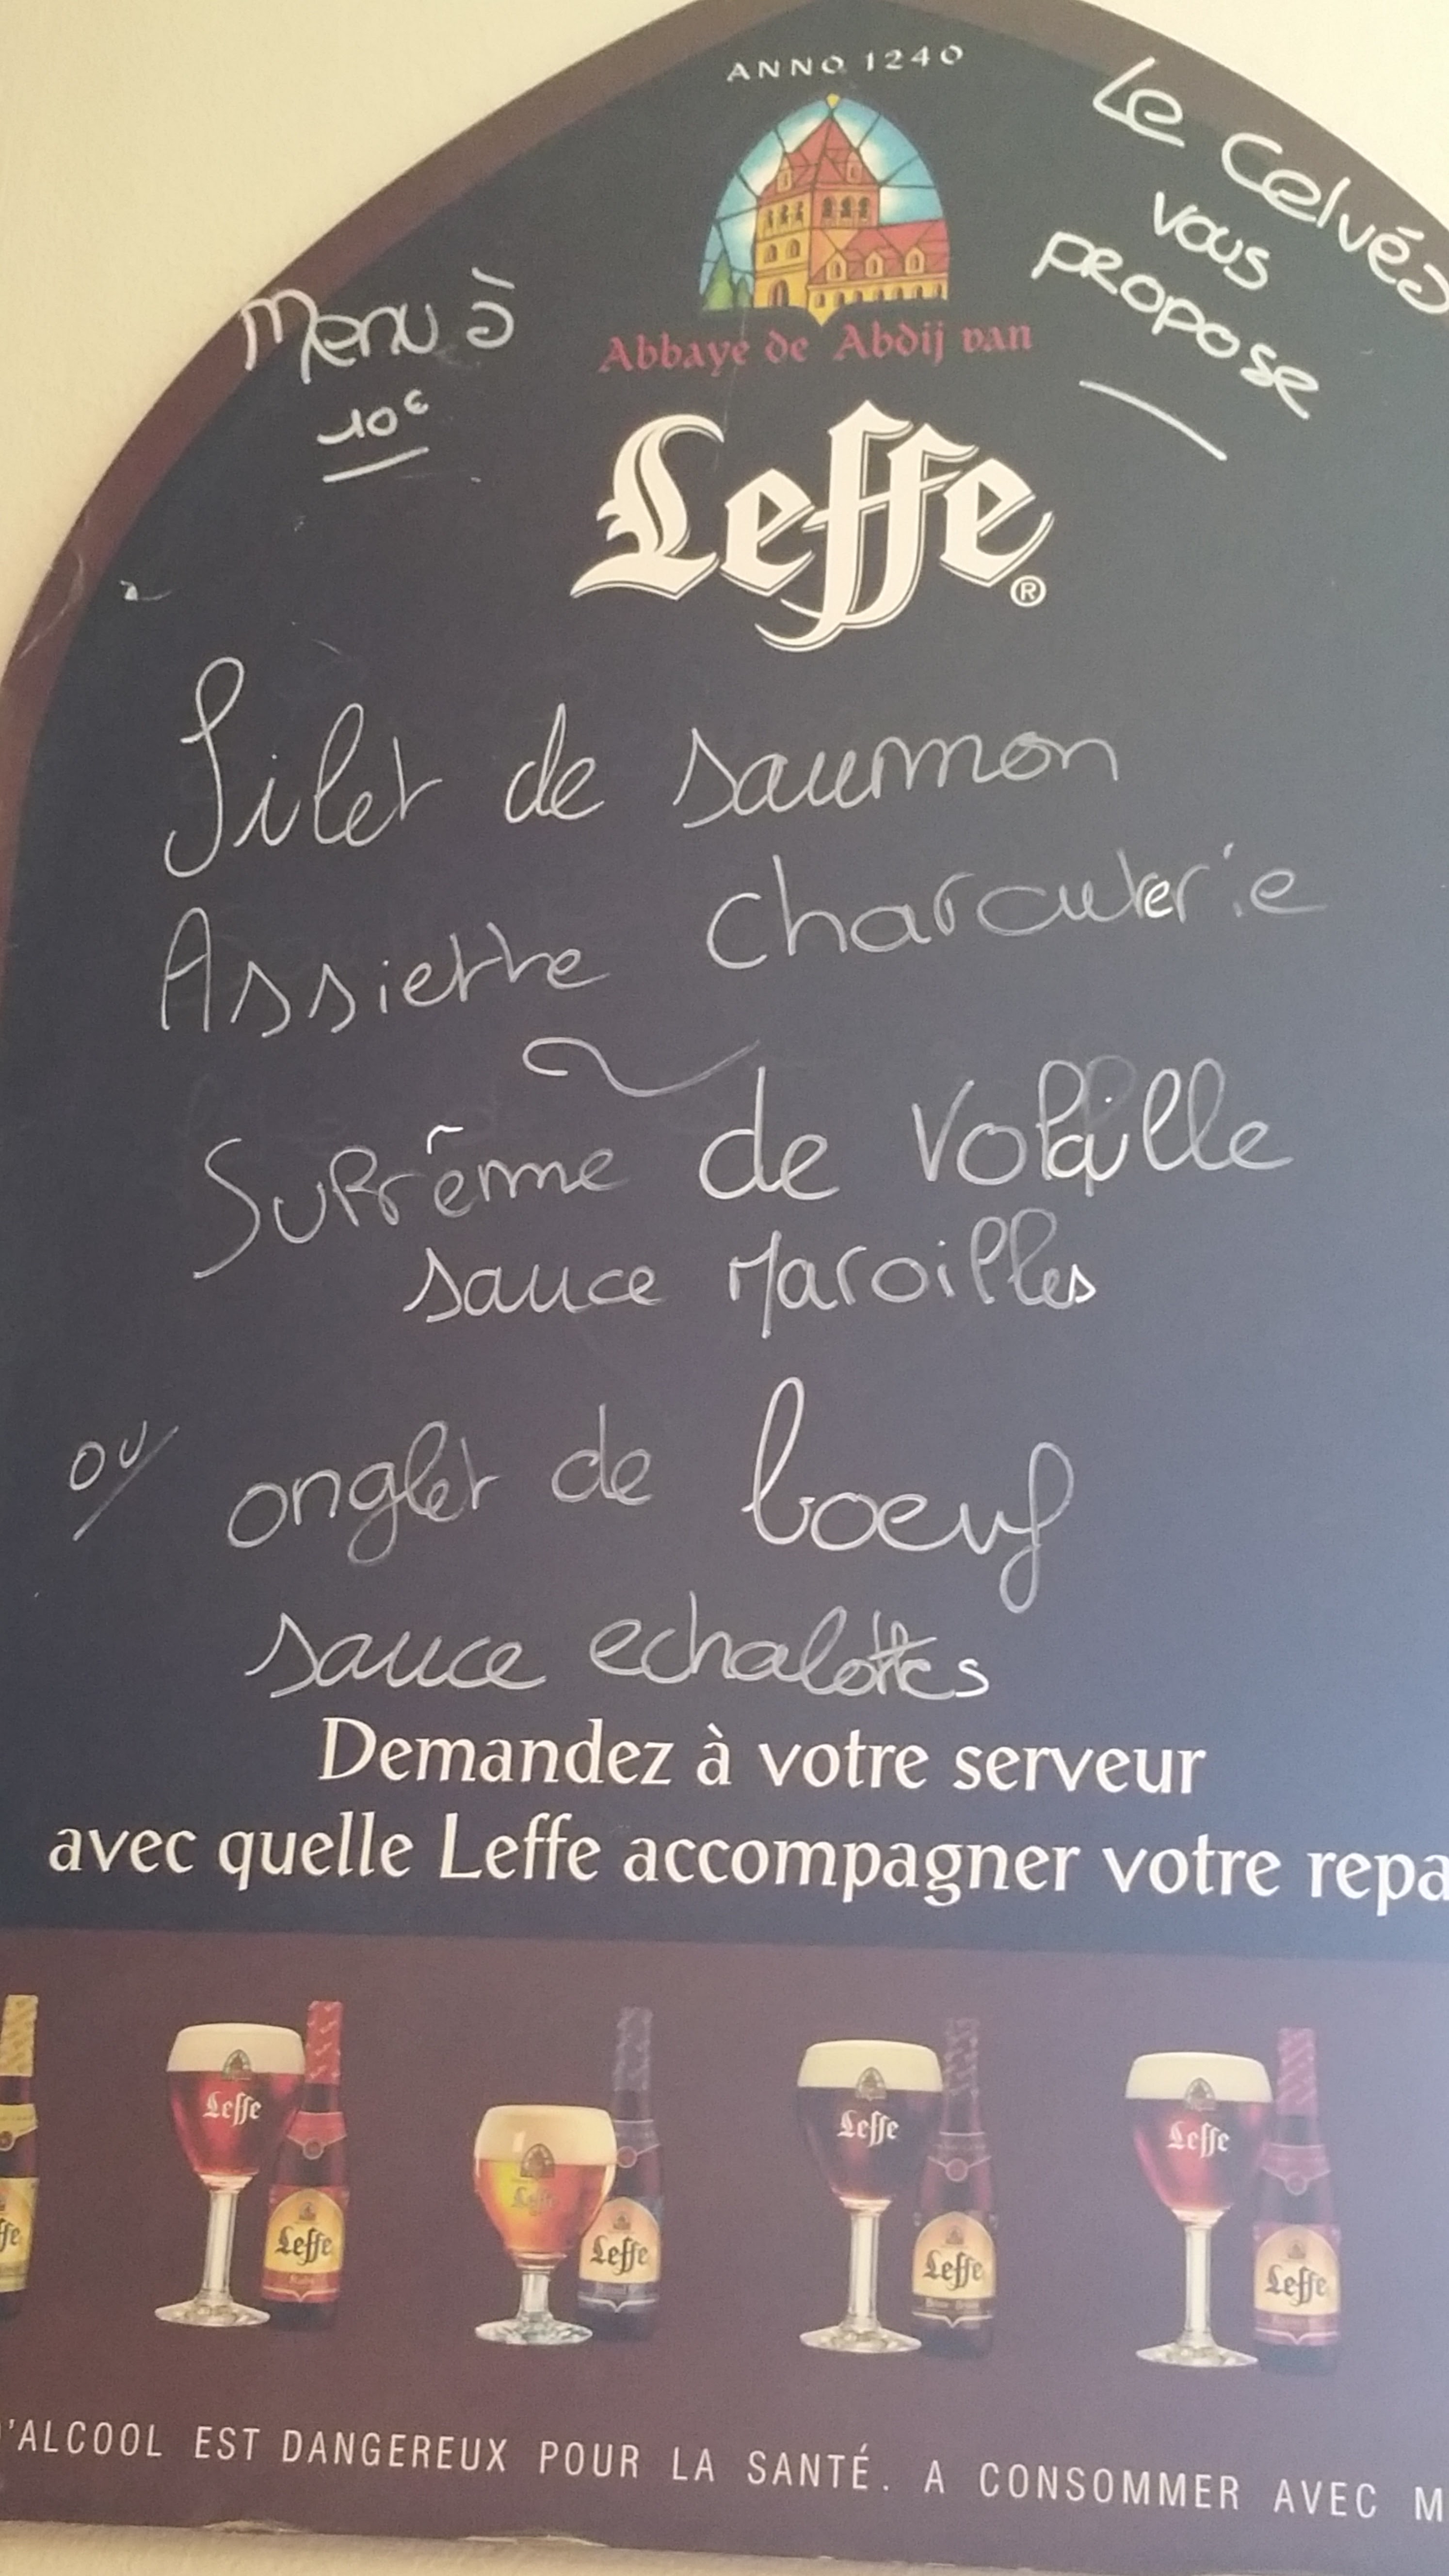 ANNO 1240
Le Celvéa
vous
propose
Menu à
10€
Abbaye de Abdij van
Leffe®
Filet de saumon
Assiette Charcuterie
Suprême de Volaille
sauce Maroilles
ou/ onglet de boeuf
sauce echalottes
Demandez à votre serveur
avec quelle Leffe accompagner votre repa
Leffe Leffe Leffe Leffe
Leffe Leffe Leffe Leffe
Ruby
D'ALCOOL EST DANGEREUX POUR LA SANTÉ. A CONSOMMER AVEC M